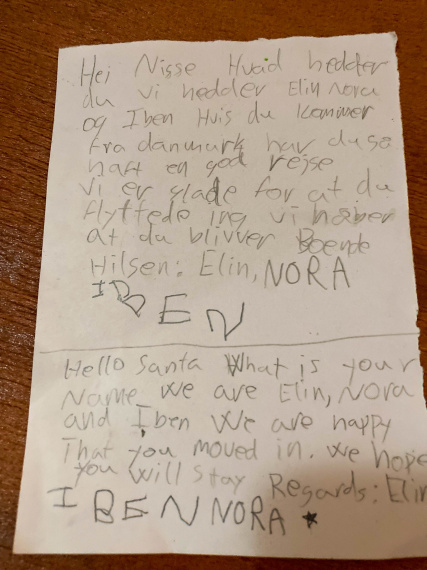 Hei Nisse Hvad hedder
du vi hedder Elin Nora
og Iben Huis du kommer
fra danmurk har du så
haft en god rejse
vi er glade for at du
flyttede ing vi håber
at du blivver Boende
Hilsen: Elin, NORA
IBEN
Hello Santa What is your
Name we are Elin, Nora
and Iben We are happy
That you moved in. we hope
you will stay Regards: Elin
IBEN NORA ★